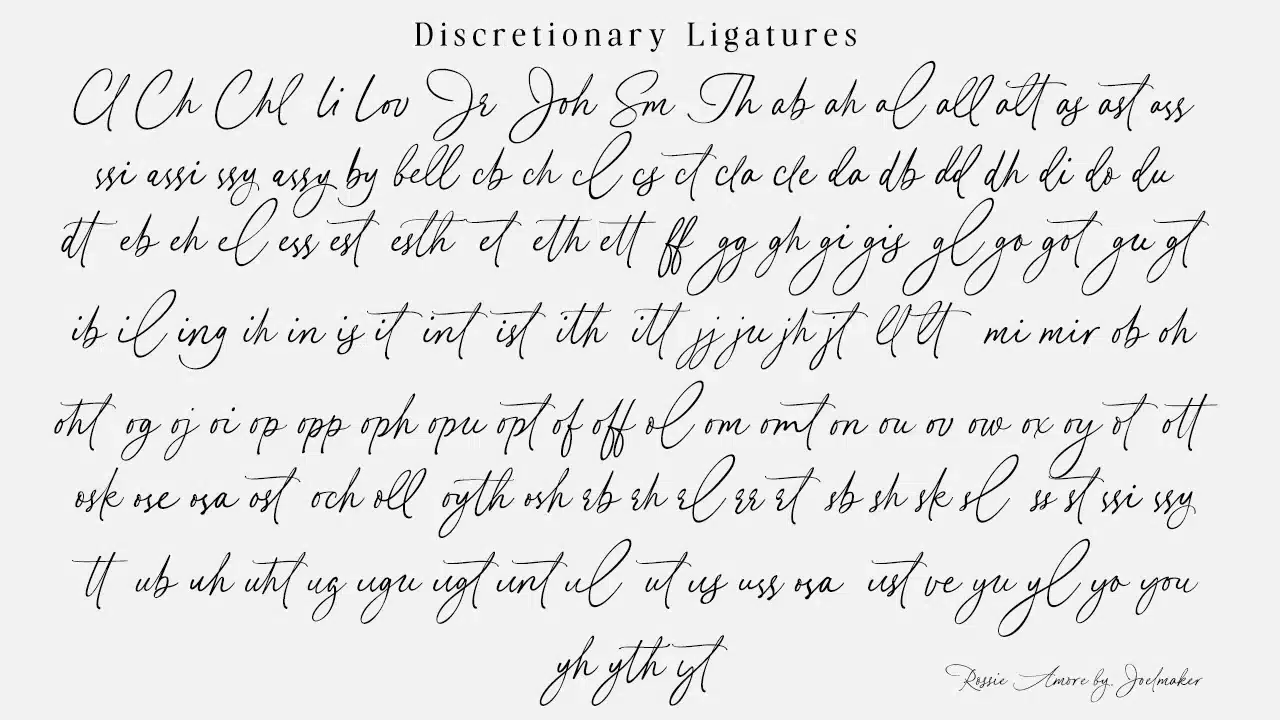 Discretionary Ligatures
Cl Ch Chl Li Lov Jr Joh Sm Th ab ah al all alt as ast ass
ssi assi ssy assy by bell cb ch cl cs ct cla cle da db dd dh di do du
dt eb eh el ess est esth et eth ett ff gg gh gi gis gl go got gu gt
ib il ing ih in is it int ist ith itt jj ju jh jt ll lt mi mir ob oh
oht og oj oi op opp oph opu opt of off ol om omt on ou ov ow ox oy ot ott
osk ose osa ost och oll oyth osh rb rh rl rr rt sb sh sk sl ss st ssi ssy
tt ub uh uht ug ugu ugt unt ul ut us uss osa ust ve yu yl yo you
yh yth yt
Rossie Amore by. Joelmaker